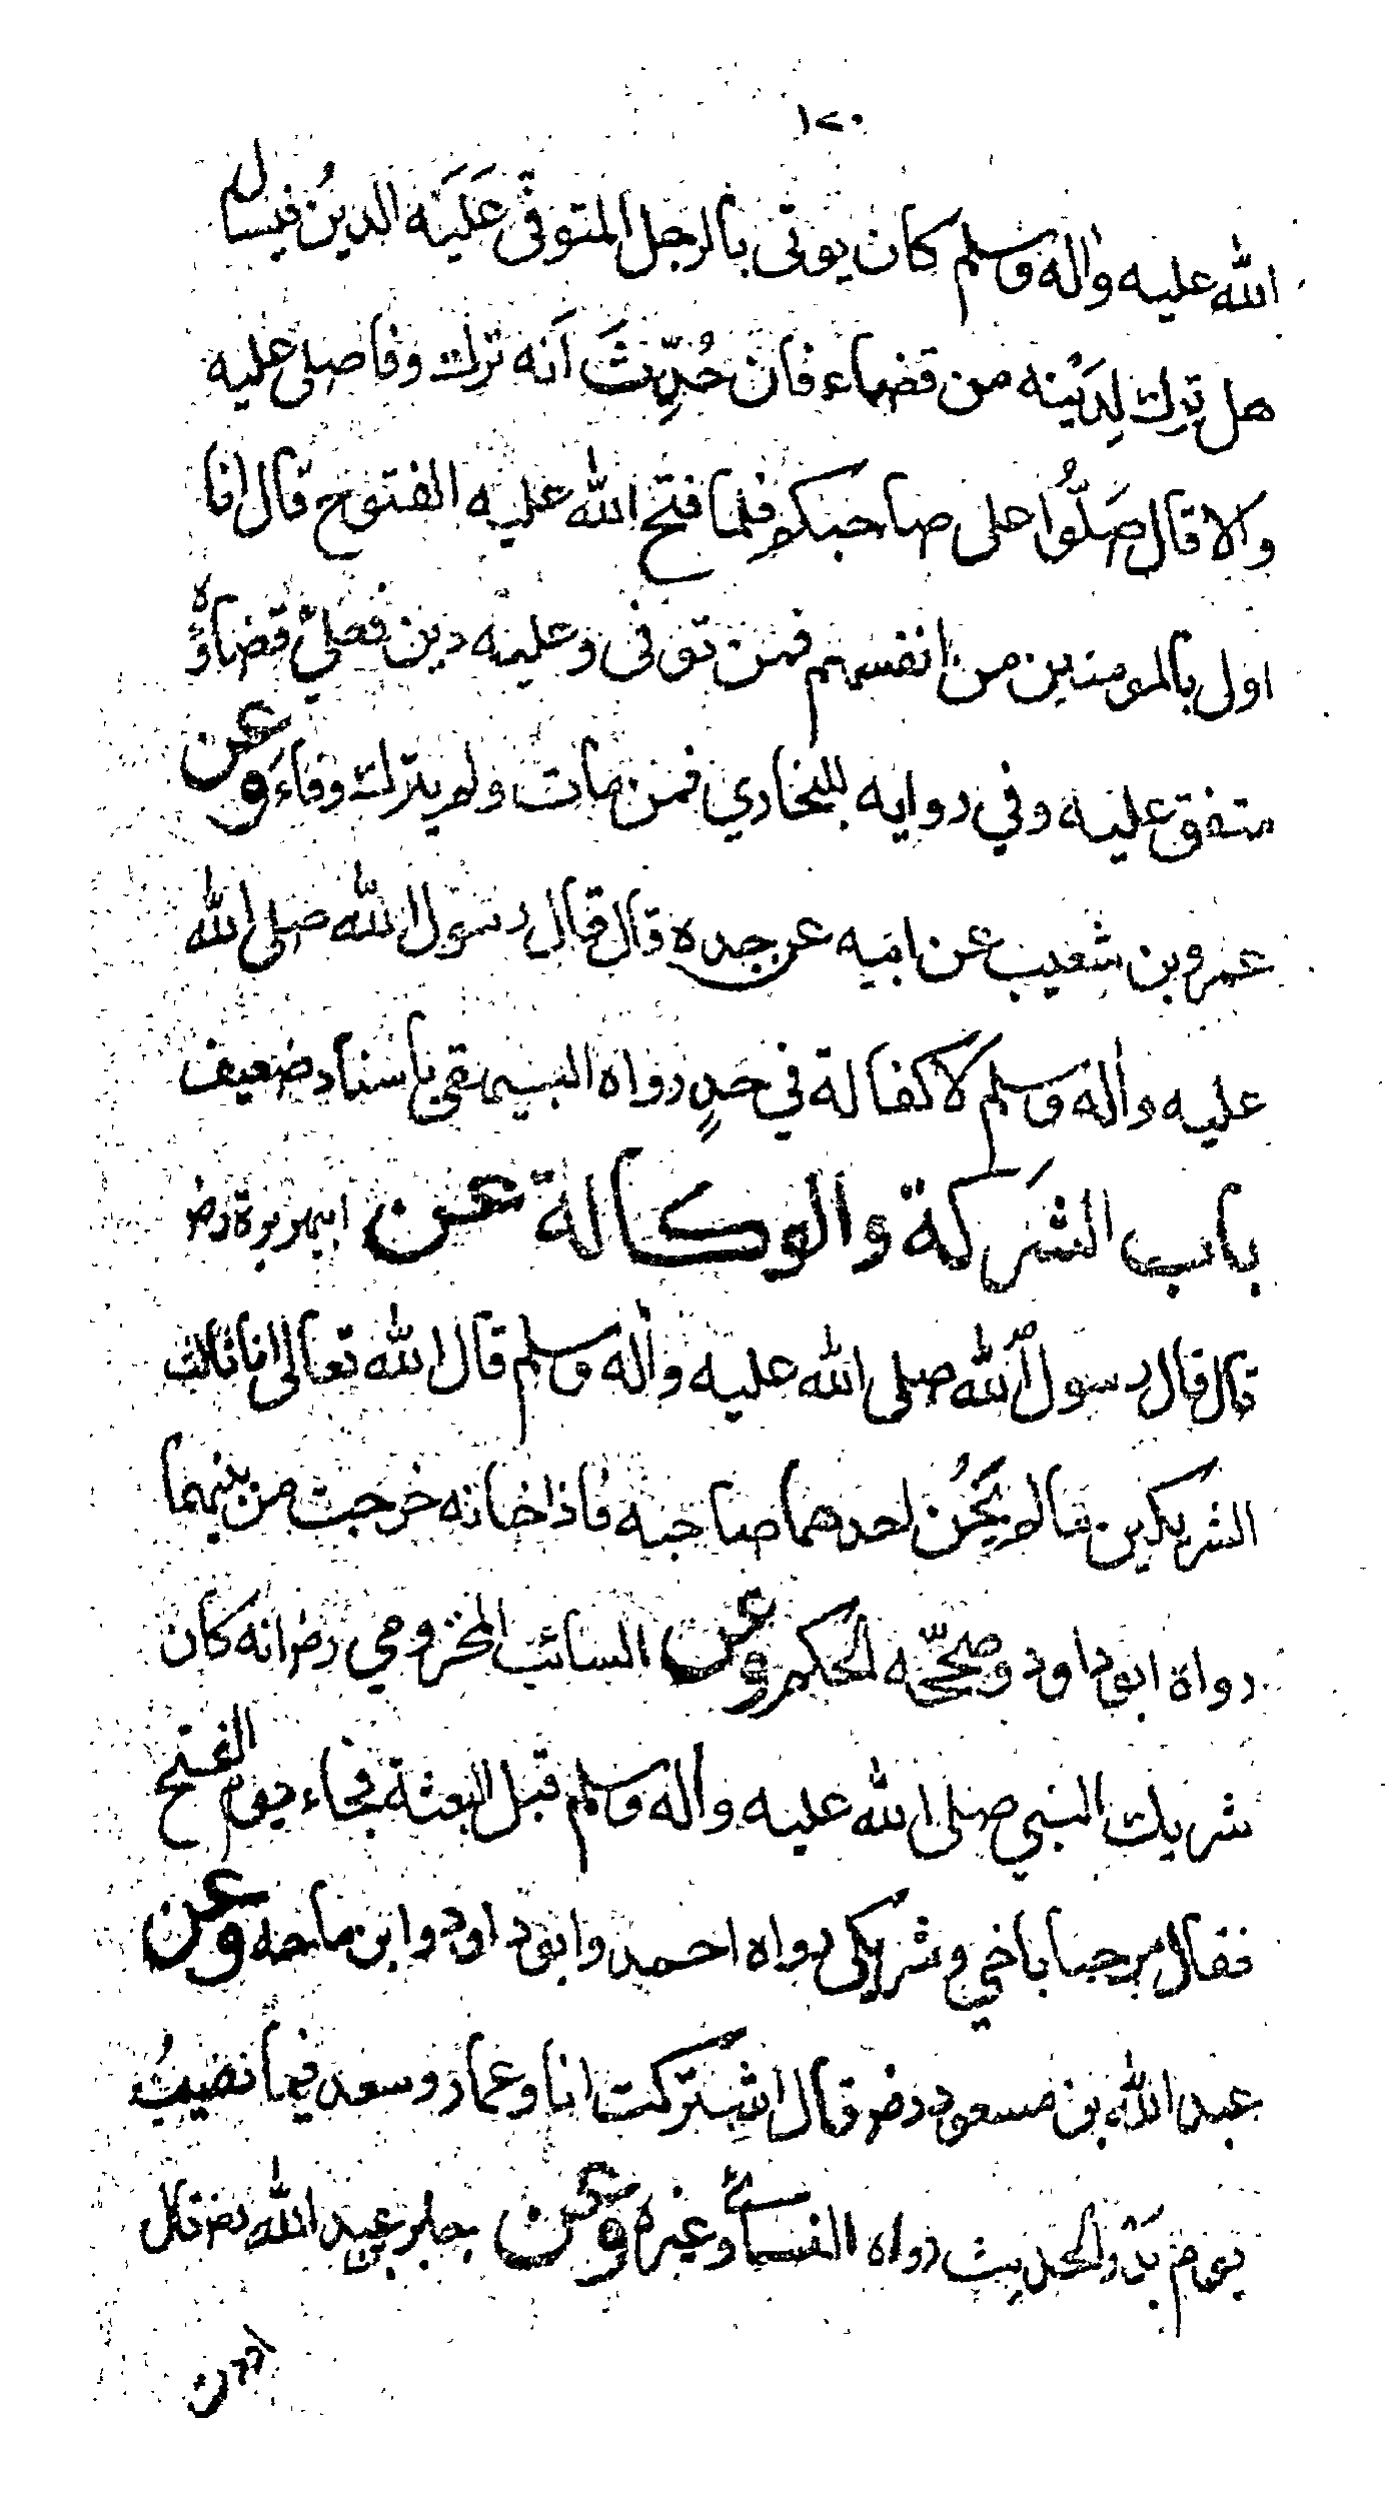 ١٢٠
الله عليه واله وسلم كان يوتى بالرجل المتوفى عَلَيْه الدينُ فيسال
هل ترك لِدَيْنه من قضاء فان حُدِّثَ اَنه ترك وفا صلى عليه
والا قال صَلُّوا على صاحبكم فلما فتح الله عليه الفتوح قال انا
اولى بالمومنين من انفسهم فمن توفى وعليه دين فعليّ قضاؤه
متفق عليه وفي روايه للبخاري فمن مات ولم يترك وفاءً وعن
عمرو بن شعيب عن ابيه عن جده قال قال رسول الله صلى الله
عليه واله وسلم لا كفالة في حدٍ رواه البيهقي باسناد ضعيف
باب الشركة والوكالة عن ابيهريرة رض
قال قال رسول الله صلى الله عليه واله وسلم قال الله تعالى انا ثالث
الشريكين مالم يَخُن احدهما صاحبه فاذا خانه خرجت من بينهما
رواه ابو داود وصحّحه الحكم وعن السائب المخزومي رض انه كان
شريك النبي صلى الله عليه واله وسلم قبل البعثة فجاء يوم الفتح
فقال مرحبا باخي وشريكي رواه احمد وابو داود وابن ماجه وعن
عبد الله بن مسعود رض قال اشتركت انا وعمار وسعد فيما نصيبُ
يوم بَدْر الحديث رواه النسائي وغيره وعن جابر بن عبد الله رض قال